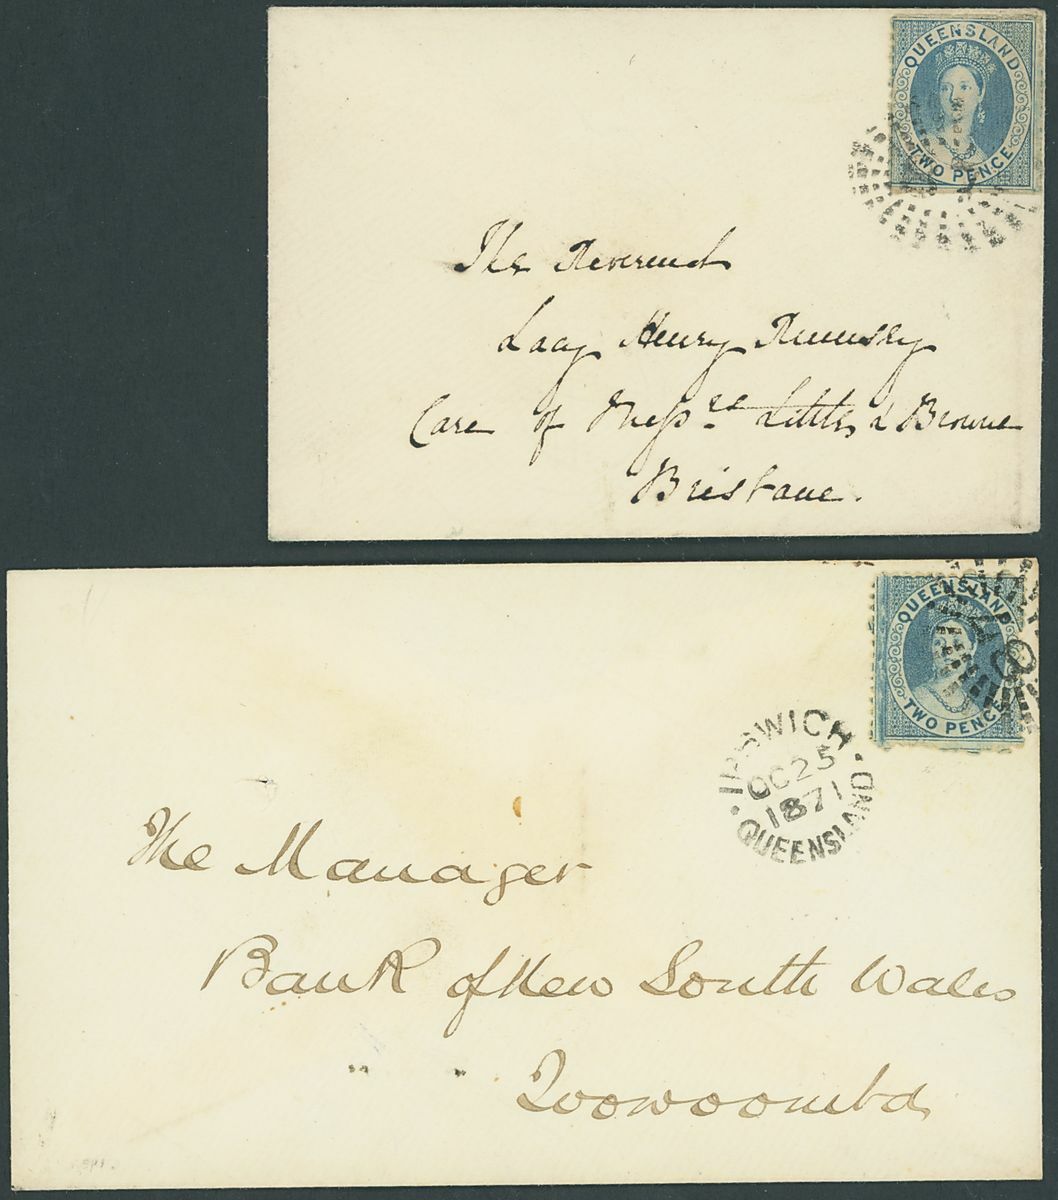 QUEENSLAND
TWO PENCE
The Reverend
Lacy Henry Rumsey
Care of Messrs Little & Browne
Brisbane.
QUEENSLAND
TWO PENCE
IPSWICH
OC 25
1871
QUEENSLAND
The Manager
Bank of New South Wales
" " Toowoomba